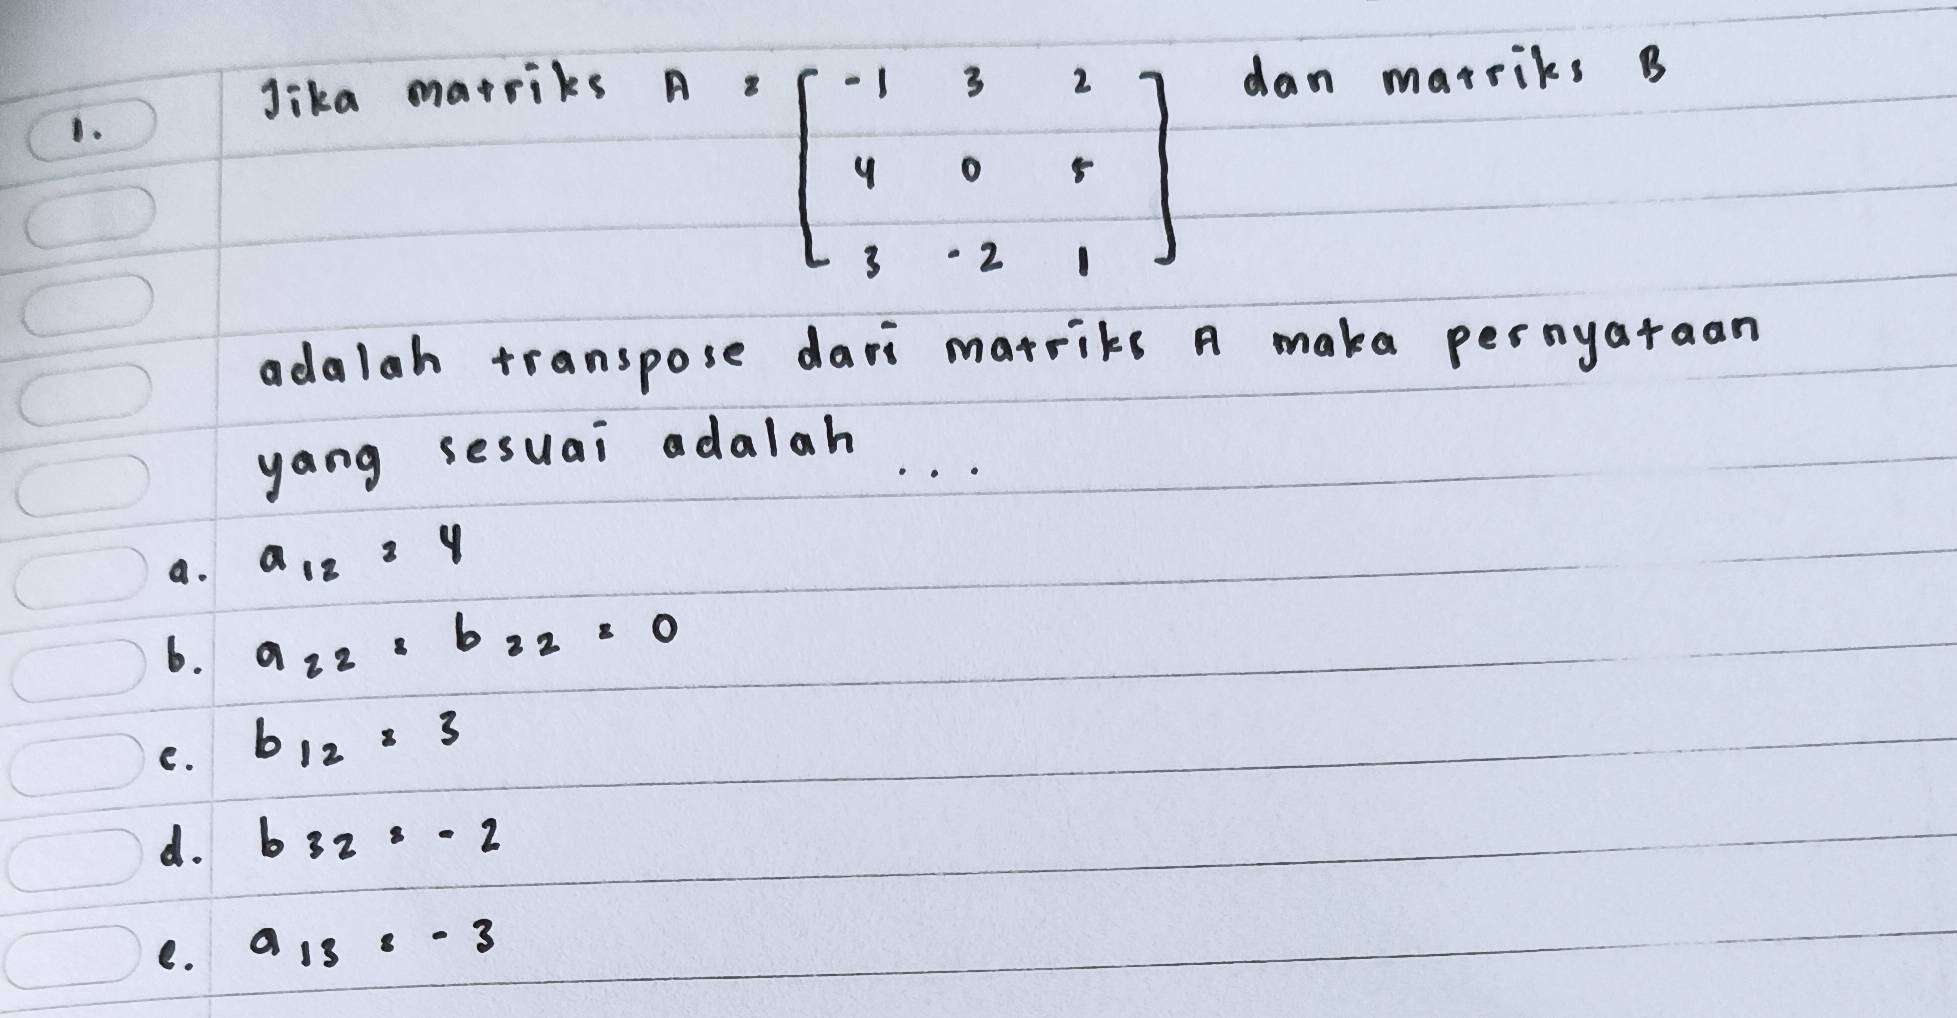 1. Jika matriks A = [ -1 3 2 ] dan matriks B
4 0 5
3 -2 1
adalah transpose dari matriks A maka pernyataan
yang sesuai adalah ...
a. a12 = 4
b. a22 = b22 = 0
c. b12 = 3
d. b32 = -2
e. a13 = -3